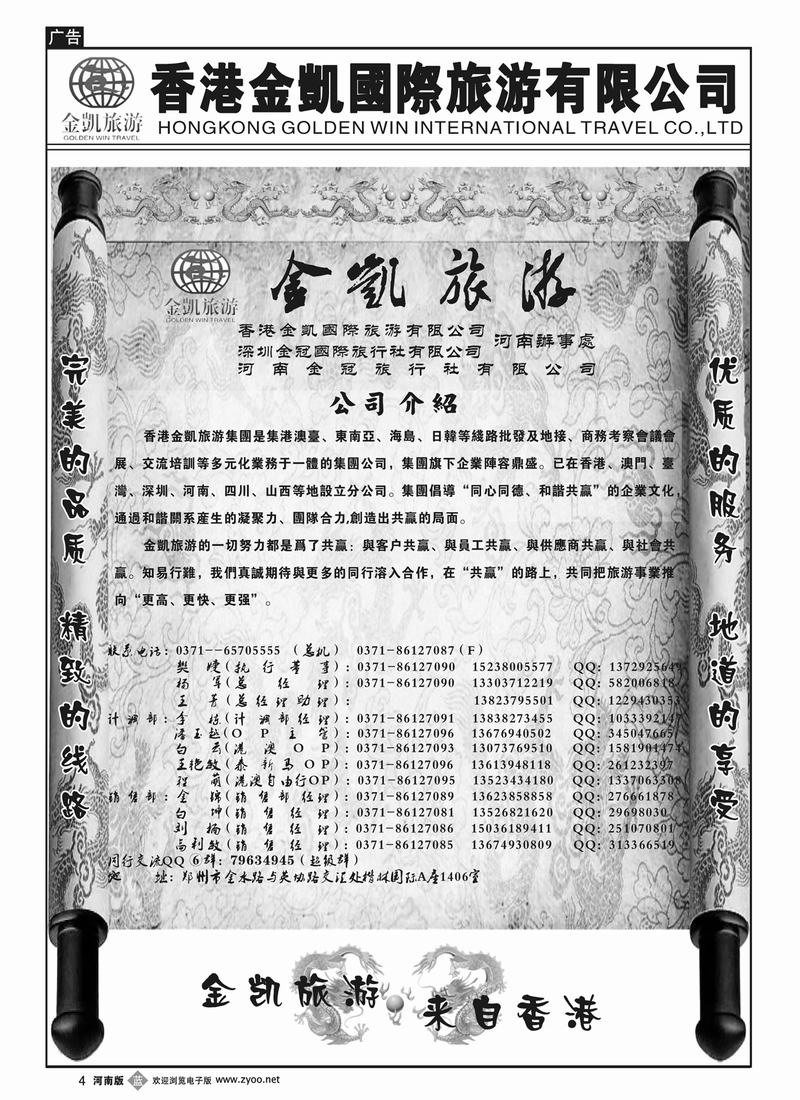 广告
香港金凱國際旅游有限公司
金凱旅游
GOLDEN WIN TRAVEL
HONGKONG GOLDEN WIN INTERNATIONAL TRAVEL CO.,LTD
金凱旅游
金凱旅游
GOLDEN WIN TRAVEL
香港金凱國際旅游有限公司
深圳金冠國際旅行社有限公司 河南辦事處
河南金冠旅行社有限公司
完美的品质 精致的线路
优质的服务 地道的享受
公司介紹
香港金凱旅游集團是集港澳臺、東南亞、海島、日韓等綫路批發及地接、商務考察會議會
展、交流培訓等多元化業務于一體的集團公司，集團旗下企業陣容鼎盛。已在香港、澳門、臺
灣、深圳、河南、四川、山西等地設立分公司。集團倡導“同心同德、和諧共贏”的企業文化，
通過和諧關系産生的凝聚力、團隊合力,創造出共贏的局面。
金凱旅游的一切努力都是爲了共贏：與客户共贏、與員工共贏、與供應商共贏、與社會共
贏。知易行難，我們真誠期待與更多的同行溶入合作，在“共贏”的路上，共同把旅游事業推
向“更高、更快、更强”。
联系电话：0371--65705555 （总机） 0371-86127087（F）
樊 婕(执行董事)：0371-86127090 15238005577 QQ：1372925649
杨 军(总经理)：0371-86127090 13303712219 QQ：582006818
王 芳(总经理助理)： 13823795501 QQ：1229430353
计调部：李 栋(计调部经理)：0371-86127091 13838273455 QQ：1033392147
潘玉赵(OP主管)：0371-86127096 13676940502 QQ：345047665
白 云(港澳OP)：0371-86127093 13073769510 QQ：1581901474
王艳敏(泰新马OP)：0371-86127096 13613948118 QQ：261232397
程 萌(港澳自由行OP)：0371-86127095 13523434180 QQ：1337063308
销售部：金 锦(销售部经理)：0371-86127089 13623858858 QQ：276661878
白 坤(销售经理)：0371-86127081 13526821620 QQ：29698030
刘 楠(销售经理)：0371-86127086 15036189411 QQ：251070801
高利敏(销售经理)：0371-86127085 13674930809 QQ：313366519
同行交流QQ⑥群：79634945（超级群）
地 址：郑州市金水路与英协路交汇处楷林国际A座1406室
金凯旅游 来自香港
4 河南版 蓝 欢迎浏览电子版 www.zyoo.net